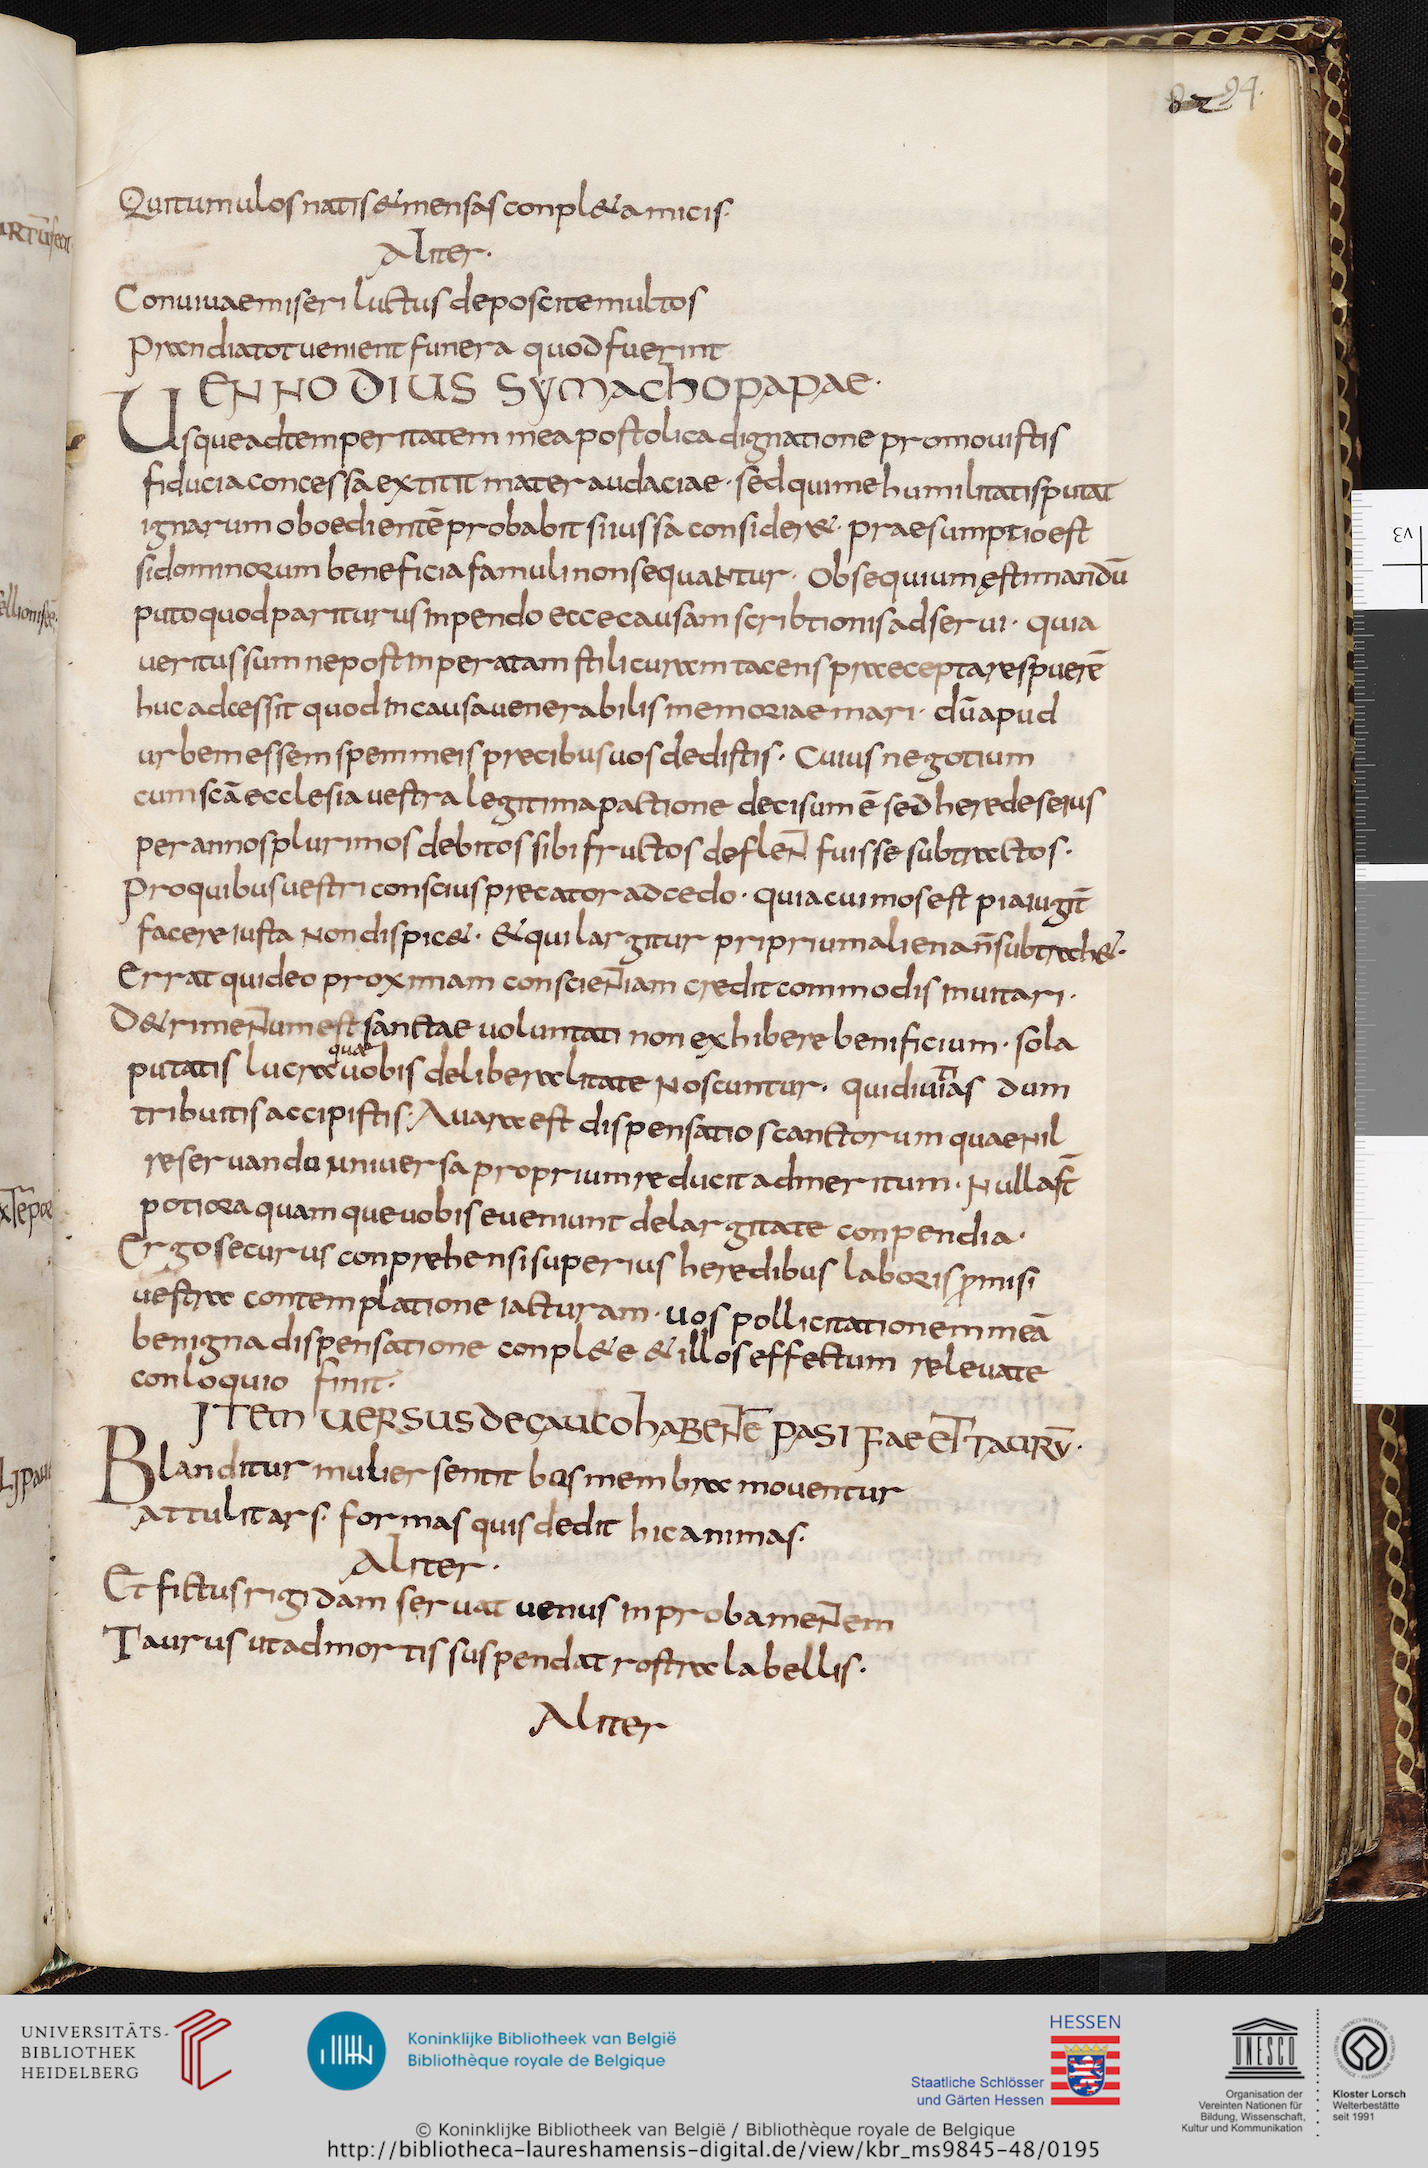 8 94.
Qui tumulos natis & mensas conpl& amicis·
Aliter·
Conuiuae miseri luctus deposcite multos
Prandia tot uenient funera quod fuerint
ENNODIUS SYMACHO PAPAE·
Usque ad temperitatem me apostolica dignatione promouistis
fiducia concessa extitit mater audaciae· sed qui me humilitatis putat
ignarum oboedientē probabit si iussa consider&· praesumptio est
si dominorum beneficia famuli non sequantur· Obsequium ęstimandū
puto quod pariturus inpendo ecce causam scribtionis adserui· quia
ueritus sum ne post inperatam stili curam tacens praecepta respuerē
huc adcessit quod in causa uenerabilis memoriae mari· dū apud
urbem essem spem meis precibus uos dedistis· Cuius negotium
cum scā ecclesia uestra legitima pactione decisum ē sed heredes eius
per annos plurimos debitos sibi fructos deflent fuisse subtractos·
Pro quibus uestri conscius precator adcedo· quia cui mos est pia iugit̄
facere iusta non dispic&· & qui largitur priprium aliena n̄ subtrah&·
Errat qui deo proximam conscientiam credit commodis inuitari·
D&rimentum est sanctae voluntati non exhibere benificium· sola
putatis lucra quae uobis de liberalitate noscuntur· quidiuitias dum
tribuitis accipistis· Auara est dispensatio scanctorum quae nil
reseruando uniuersa proprium reducit ad meritum· Nulla st̄
potiora quam que uobis eueniunt de largitate conpendia·
Ergo securus conprehensi superius heredibus laboris promisi
uestra contemplatione iacturam· uos pollicitationem meā
benigna dispensatione conpl&e & illos effectum releuate
conloquio finit·
ITEM UERSUS DE CAUCO HABENTĒ PASIFAE ET TAURŪ·
Blanditur mulier sentit bos membra mouentur
Attulit ars· formas quis dedit hic animas·
Aliter·
Et fictus rigidam seruat uenus inproba mentem
Taurus ut ad mortis suspendat rostra labellis·
Aliter
UNIVERSITÄTS-
BIBLIOTHEK
HEIDELBERG
Koninklijke Bibliotheek van België
Bibliothèque royale de Belgique
HESSEN
Staatliche Schlösser
und Gärten Hessen
UNESCO
Organisation der
Vereinten Nationen für
Bildung, Wissenschaft,
Kultur und Kommunikation
Kloster Lorsch
Welterbestätte
seit 1991
© Koninklijke Bibliotheek van België / Bibliothèque royale de Belgique
http://bibliotheca-laureshamensis-digital.de/view/kbr_ms9845-48/0195